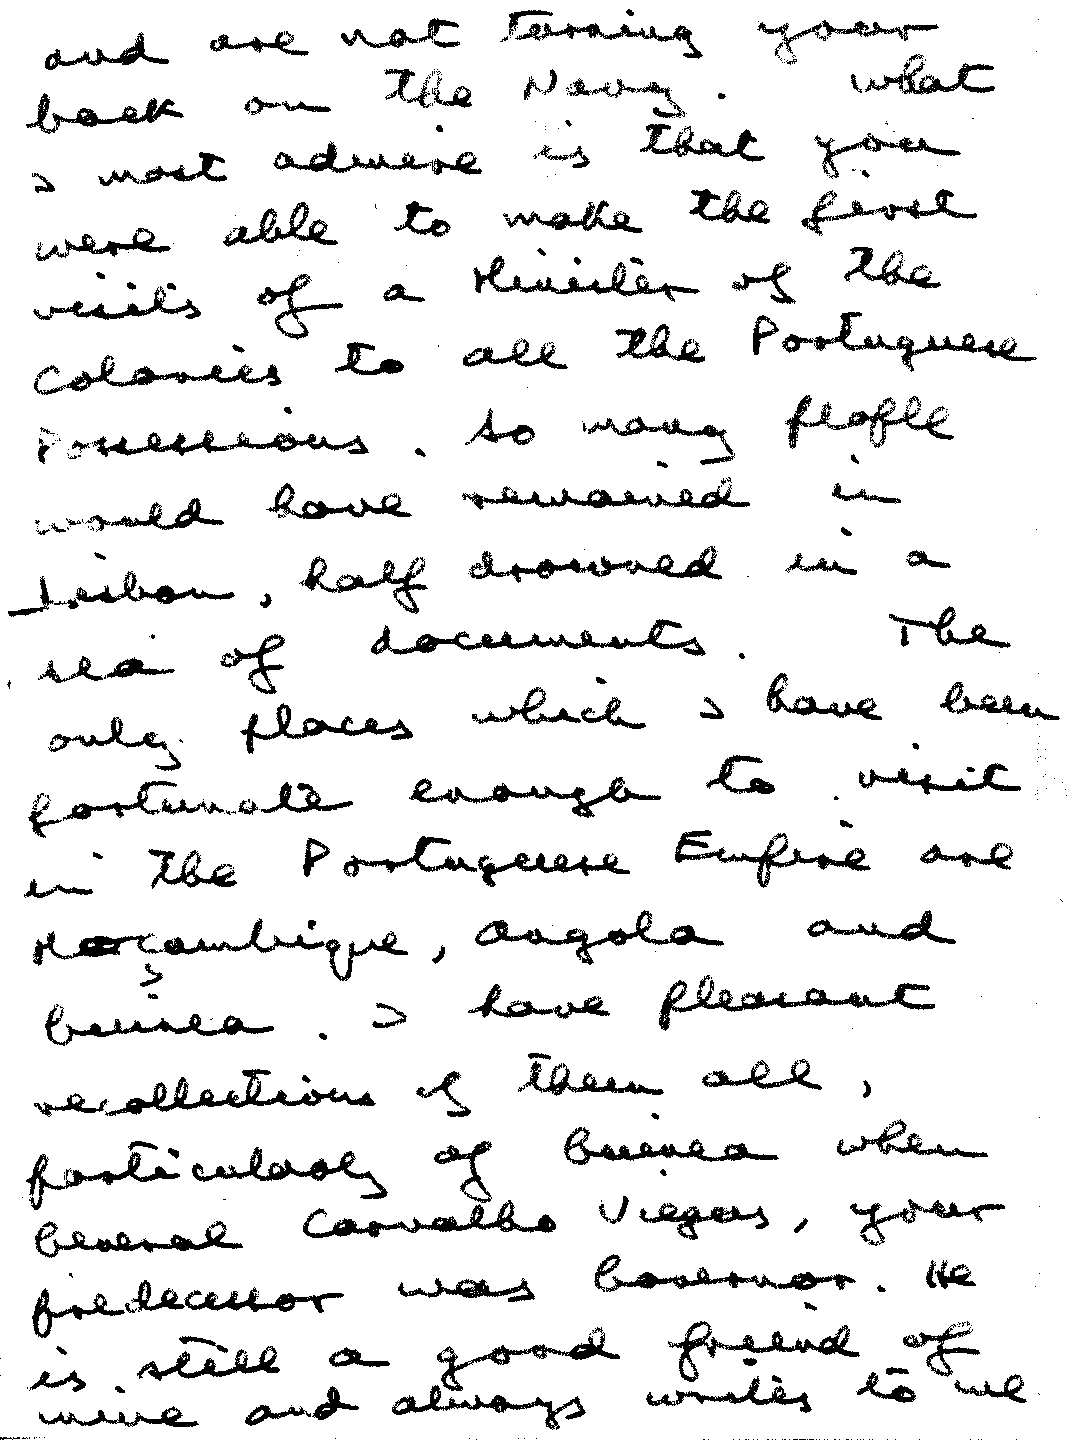 and are not turning your
back on the Navy. What
I most admire is that you
were able to make the first
visits of a Minister of the
Colonies to all the Portuguese
Possessions. So many people
would have remained in
Lisbon, half drowned in a
sea of documents. The
only places which I have been
fortunate enough to visit
in the Portuguese Empire are
Moçambique, Angola and
Guinea. I have pleasant
recollections of them all,
particularly of Guinea when
General Carvalho Viegas, your
predecessor was Governor. He
is still a good friend of
mine and always writes to me